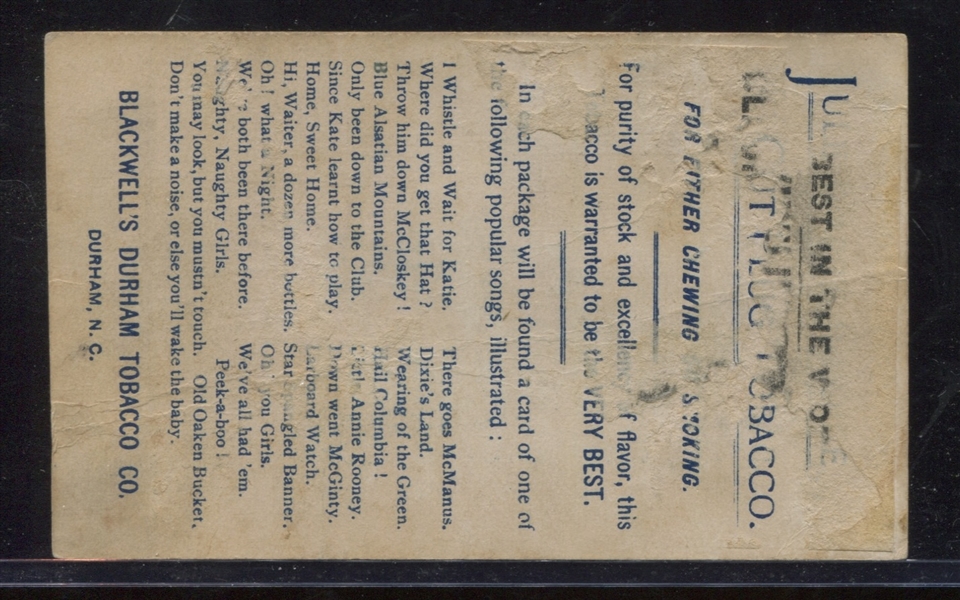 JUST
BEST IN THE WORLD
PLUG TOBACCO.
FOR EITHER CHEWING OR SMOKING.
For purity of stock and excellence of flavor, this
Tobacco is warranted to be the VERY BEST.
In each package will be found a card of one of
the following popular songs, illustrated :
I Whistle and Wait for Katie.
Where did you get that Hat ?
Throw him down McCloskey !
Blue Alsatian Mountains.
Only been down to the Club.
Since Kate learnt how to play.
Home, Sweet Home.
Hi, Waiter, a dozen more bottles.
Oh ! what a Night.
We've both been there before.
Naughty, Naughty Girls.
You may look, but you mustn't touch.
Don't make a noise, or else you'll wake the baby.
There goes McManus.
Dixie's Land.
Wearing of the Green.
Hail Columbia !
Little Annie Rooney.
Down went McGinty.
Larboard Watch.
Star Spangled Banner.
Oh ! you Girls.
We've all had 'em.
Peek-a-boo !
Old Oaken Bucket.
BLACKWELL'S DURHAM TOBACCO CO.
DURHAM, N. C.